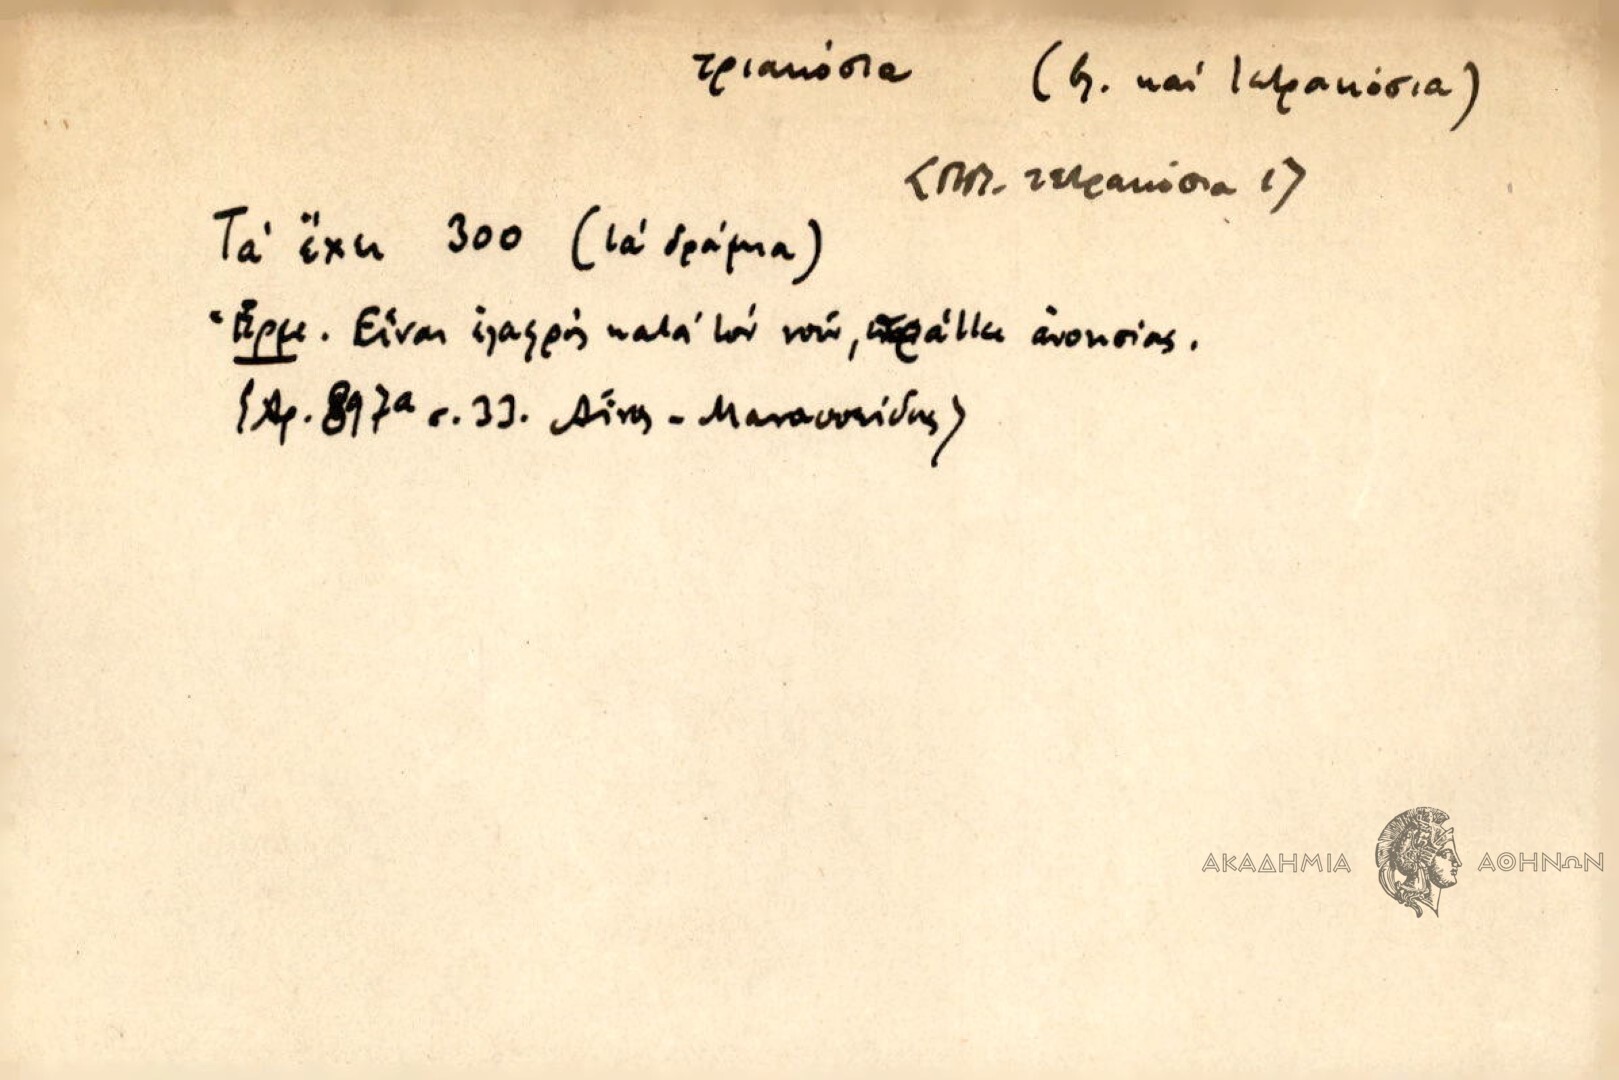 τριακόσια (βλ. καί τετρακόσια)
<ΠΠ. τετρακόσια 1>
Τά ἔχει 300 (τά δράμια)
Ἑρμ. Εἶναι ἐλαφρός κατά τόν νοῦν, πράττει ἀνοησίας.
{Αρ. 897α σ. 33. Αἶνος - Μανασσείδης}
ΑΚΑΔΗΜΙΑ ΑΘΗΝΩΝ